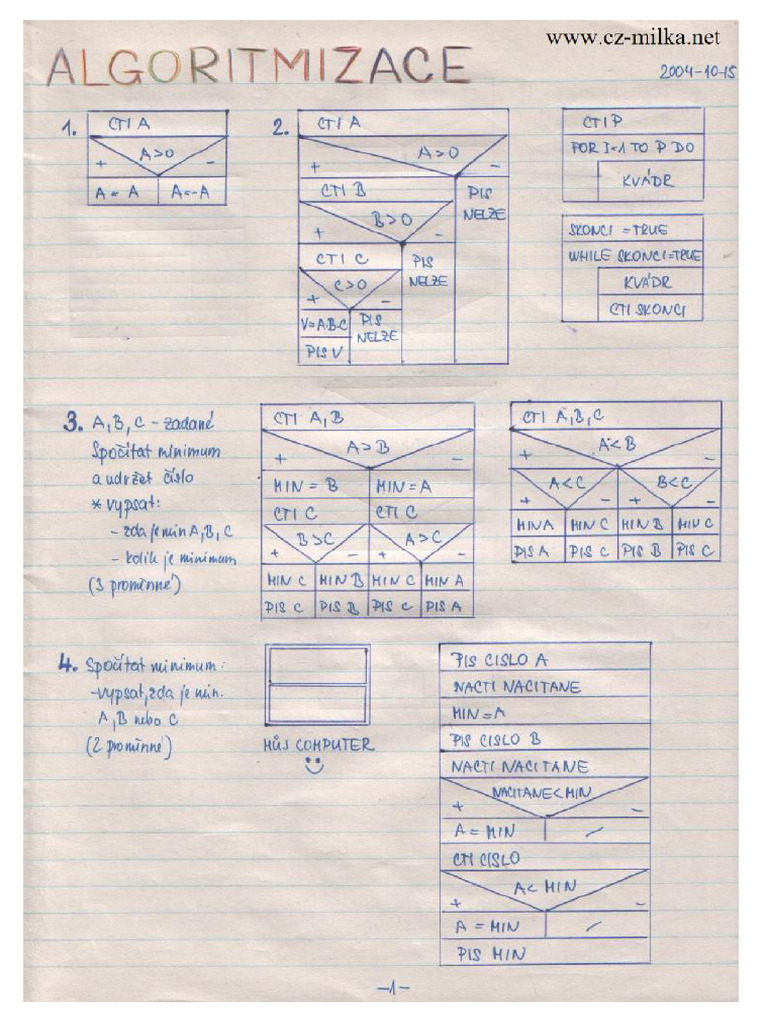 www.cz-milka.net
ALGORITMIZACE
2004-10-15
1.
CTI A
A>0
+ -
A = A A=-A
2.
CTI A
A>0
+ -
CTI B
PIS NELZE
B>0
+ -
CTI C
PIS NELZE
C>0
+ -
V=A·B·C PIS NELZE
PIS V
CTI P
FOR I=1 TO P DO
KVÁDR
SKONCI =TRUE
WHILE SKONCI=TRUE
KVÁDR
CTI SKONCI
3. A, B, C - zadané
Spočítat minimum
a udržet číslo
* vypsat:
- zda je min A, B, C
- kolik je minimum
(3 prominné)
CTI A, B
A>B
+ -
MIN = B MIN = A
CTI C CTI C
B>C A>C
+ - + -
MIN C MIN B MIN C MIN A
PIS C PIS B PIS C PIS A
CTI A, B, C
A<B
+ -
A<C B<C
+ - + -
MIN A MIN C MIN B MIN C
PIS A PIS C PIS B PIS C
4. Spočítat minimum:
-vypsat, zda je min.
A, B nebo C
(2 prominné)
MŮJ COMPUTER
PIS CISLO A
NACTI NACITANE
MIN = A
PIS CISLO B
NACTI NACITANE
NACITANE<MIN
+ -
A = MIN
CTI CISLO
A< MIN
+ -
A = MIN
PIS MIN
-1-